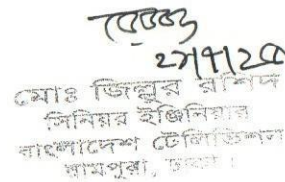 ২৮/৭/২০
মোঃ জিল্লুর রশিদ
সিনিয়র ইঞ্জিনিয়ার
বাংলাদেশ টেলিভিশন
রামপুরা, ঢাকা।